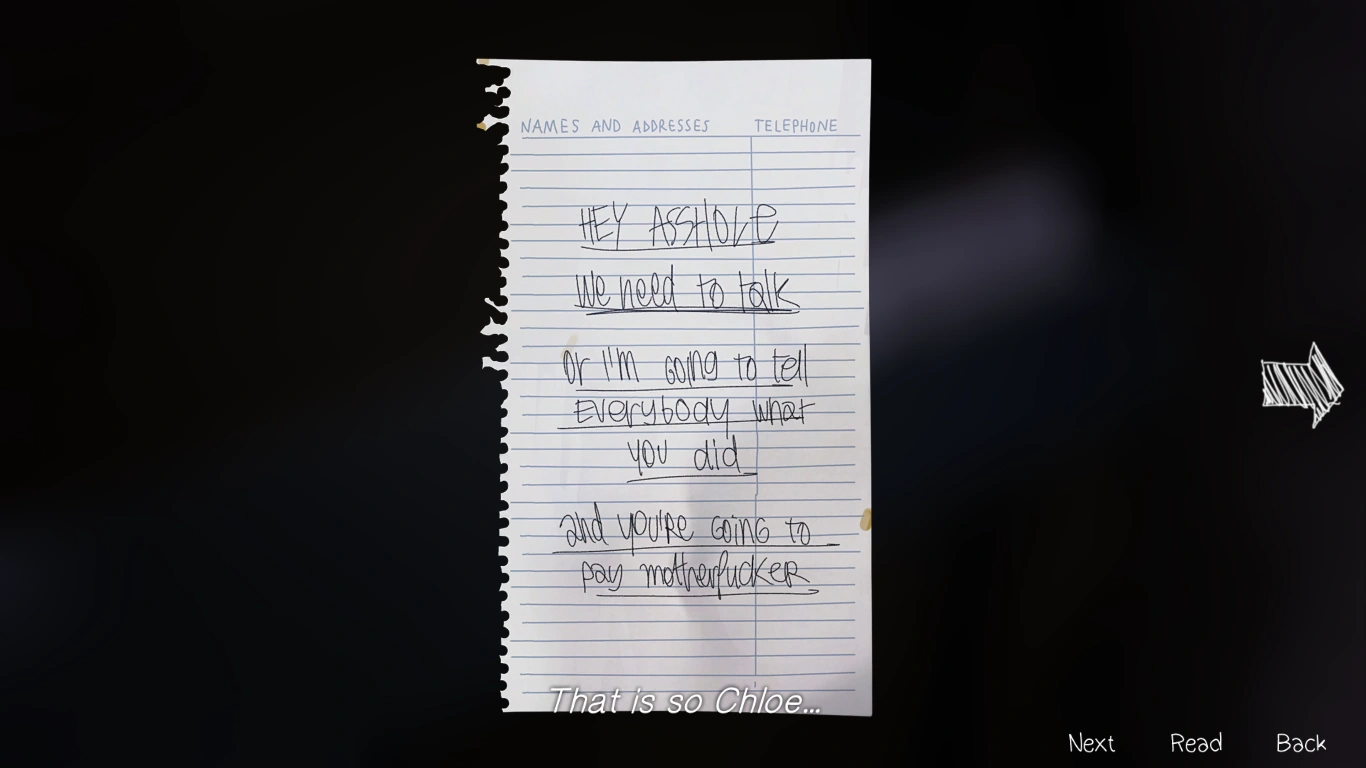 NAMES AND ADDRESSES TELEPHONE
HEY ASSHOLE
We need to talk
Or I'm going to tell
Everybody what
you did
and you're going to
pay motherfucker
That is so Chloe...
Next Read Back